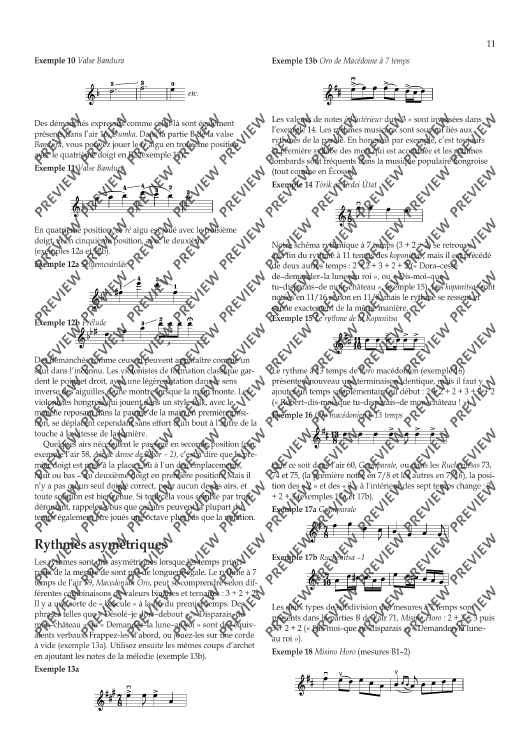 11
Exemple 10 Valse Bandura
etc.
Des démanchés expressifs comme celui-là sont également
présents dans l'air 16, Dumka. Dans la partie B de la valse
Bandura, vous pouvez jouer le ré aigu en troisième position
avec le quatrième doigt en B (exemple 11).
Exemple 11 Valse Bandura
En quatrième position, le ré aigu est joué avec le troisième
doigt, et en cinquième position, avec le deuxième
(exemples 12a et 12b).
Exemple 12a
Exemple 12b Prélude
Des démanchés comme ceux-ci peuvent apparaître comme un
saut dans l'inconnu. Les violonistes de formation classique gar-
dent le poignet droit, avec une légère rotation dans le sens
inverse des aiguilles d'une montre lorsque la main monte. Les
violonistes hongrois qui jouent dans un style
manche reposant dans la paume de la main en première posi-
tion, se déplacent cependant sans effort d'un bout à l'autre de la
touche à la vitesse de la lumière.
Quelques airs nécessitent le passage en seconde position (par
exemple l'air 58, – 2), c'est-à-dire que le pre-
mier doigt est mis à la place
haut ou bas – du deuxième doigt en première position. Mais il
n'y a pas qu'un seul doigté correct, pour aucun de ces airs, et
toute solution est bienvenue. Si tout cela vous semble par trop
déroutant, rappelez-vous que ces airs peuvent la plupart du
temps également être joués une octave plus bas que la notation.
Rythmes asymétriques
Les rythmes sont dits asymétriques lorsque les temps princi-
paux de la mesure ne sont pas de longueur égale. Le rythme à 7
temps de l'air 59, Macedonian Oro, peut se comprendre selon dif-
férentes combinaisons de valeurs binaires et ternaires : 3 + 2 + 2.
Il y a une sorte de « bascule » à la fin du premier temps. Des
phrases telles que « Désolé-je dors-debout », « Disparais-de
mon-château » ou « Demander-la lune-au roi » sont des équiv-
alents verbaux. Frappez-les d'abord, ou jouez-les sur une corde
à vide (exemple 13a). Utilisez ensuite les mêmes coups d'archet
en ajoutant les notes de la mélodie (exemple 13b).
Exemple 13a
Exemple 13b Oro de Macédoine à 7 temps
Les valeurs de notes à l'intérieur du « 3 » sont inversées dans
l'exemple 14. Les rythmes musicaux sont souvent liés aux
rythmes de la parole. En hongrois par exemple, c'est toujours
la première syllabe des mots qui est accentuée et les rythmes
lombards sont fréquents dans la musique populaire hongroise
(tout comme en Écosse).
Exemple 14
Notre schéma rythmique à 7 temps (3 + 2 + 2) se retrouve
à la fin du rythme à 11 temps des kopanitsa, mais il est précédé
de deux autres temps : 2 + 2 + 3 + 2 + 2 (« Dora-cesse
de-demander-la lune-au roi », ou « Dis-moi-que
tu-disparais-de mon-château », exemple 15). Les kopanitsa sont
notées en 11/16 sinon en 11/8 mais le rythme se ressent et
sonne exactement de la même manière.
Exemple 15 Le rythme de la Kopanitsa
Le rythme à 13 temps de l'oro macédonien (exemple 16)
présente à nouveau une terminaison identique, mais il faut y
ajouter un temps supplémentaire au début : 2 + 2 + 2 + 3 + 2 + 2
(« Robert-dis-moi-que tu-disparais-de mon-château ! »).
Exemple 16 Oro macédonien à 13 temps
Que ce soit dans l'air 60, Gankino
74 et 75, (la première notée en 7/8 et les autres en 7/16), la posi-
tion des « 2 » et des « 3 » à l'intérieur des sept temps change : 2
+ 2 + 3 (exemples 17a et 17b).
Exemple 17a
Exemple 17b Ruchenitsa –1
Les deux types de subdivision des mesures à 7 temps sont
présents dans les parties B de l'air 71, Misirio Horo : 2 + 2 + 3 puis
3 + 2 + 2 (« Dis-moi-que tu-disparais » et « Demander-la lune-
au roi »).
Exemple 18 Misirio Horo (mesures B1–2)
PREVIEW